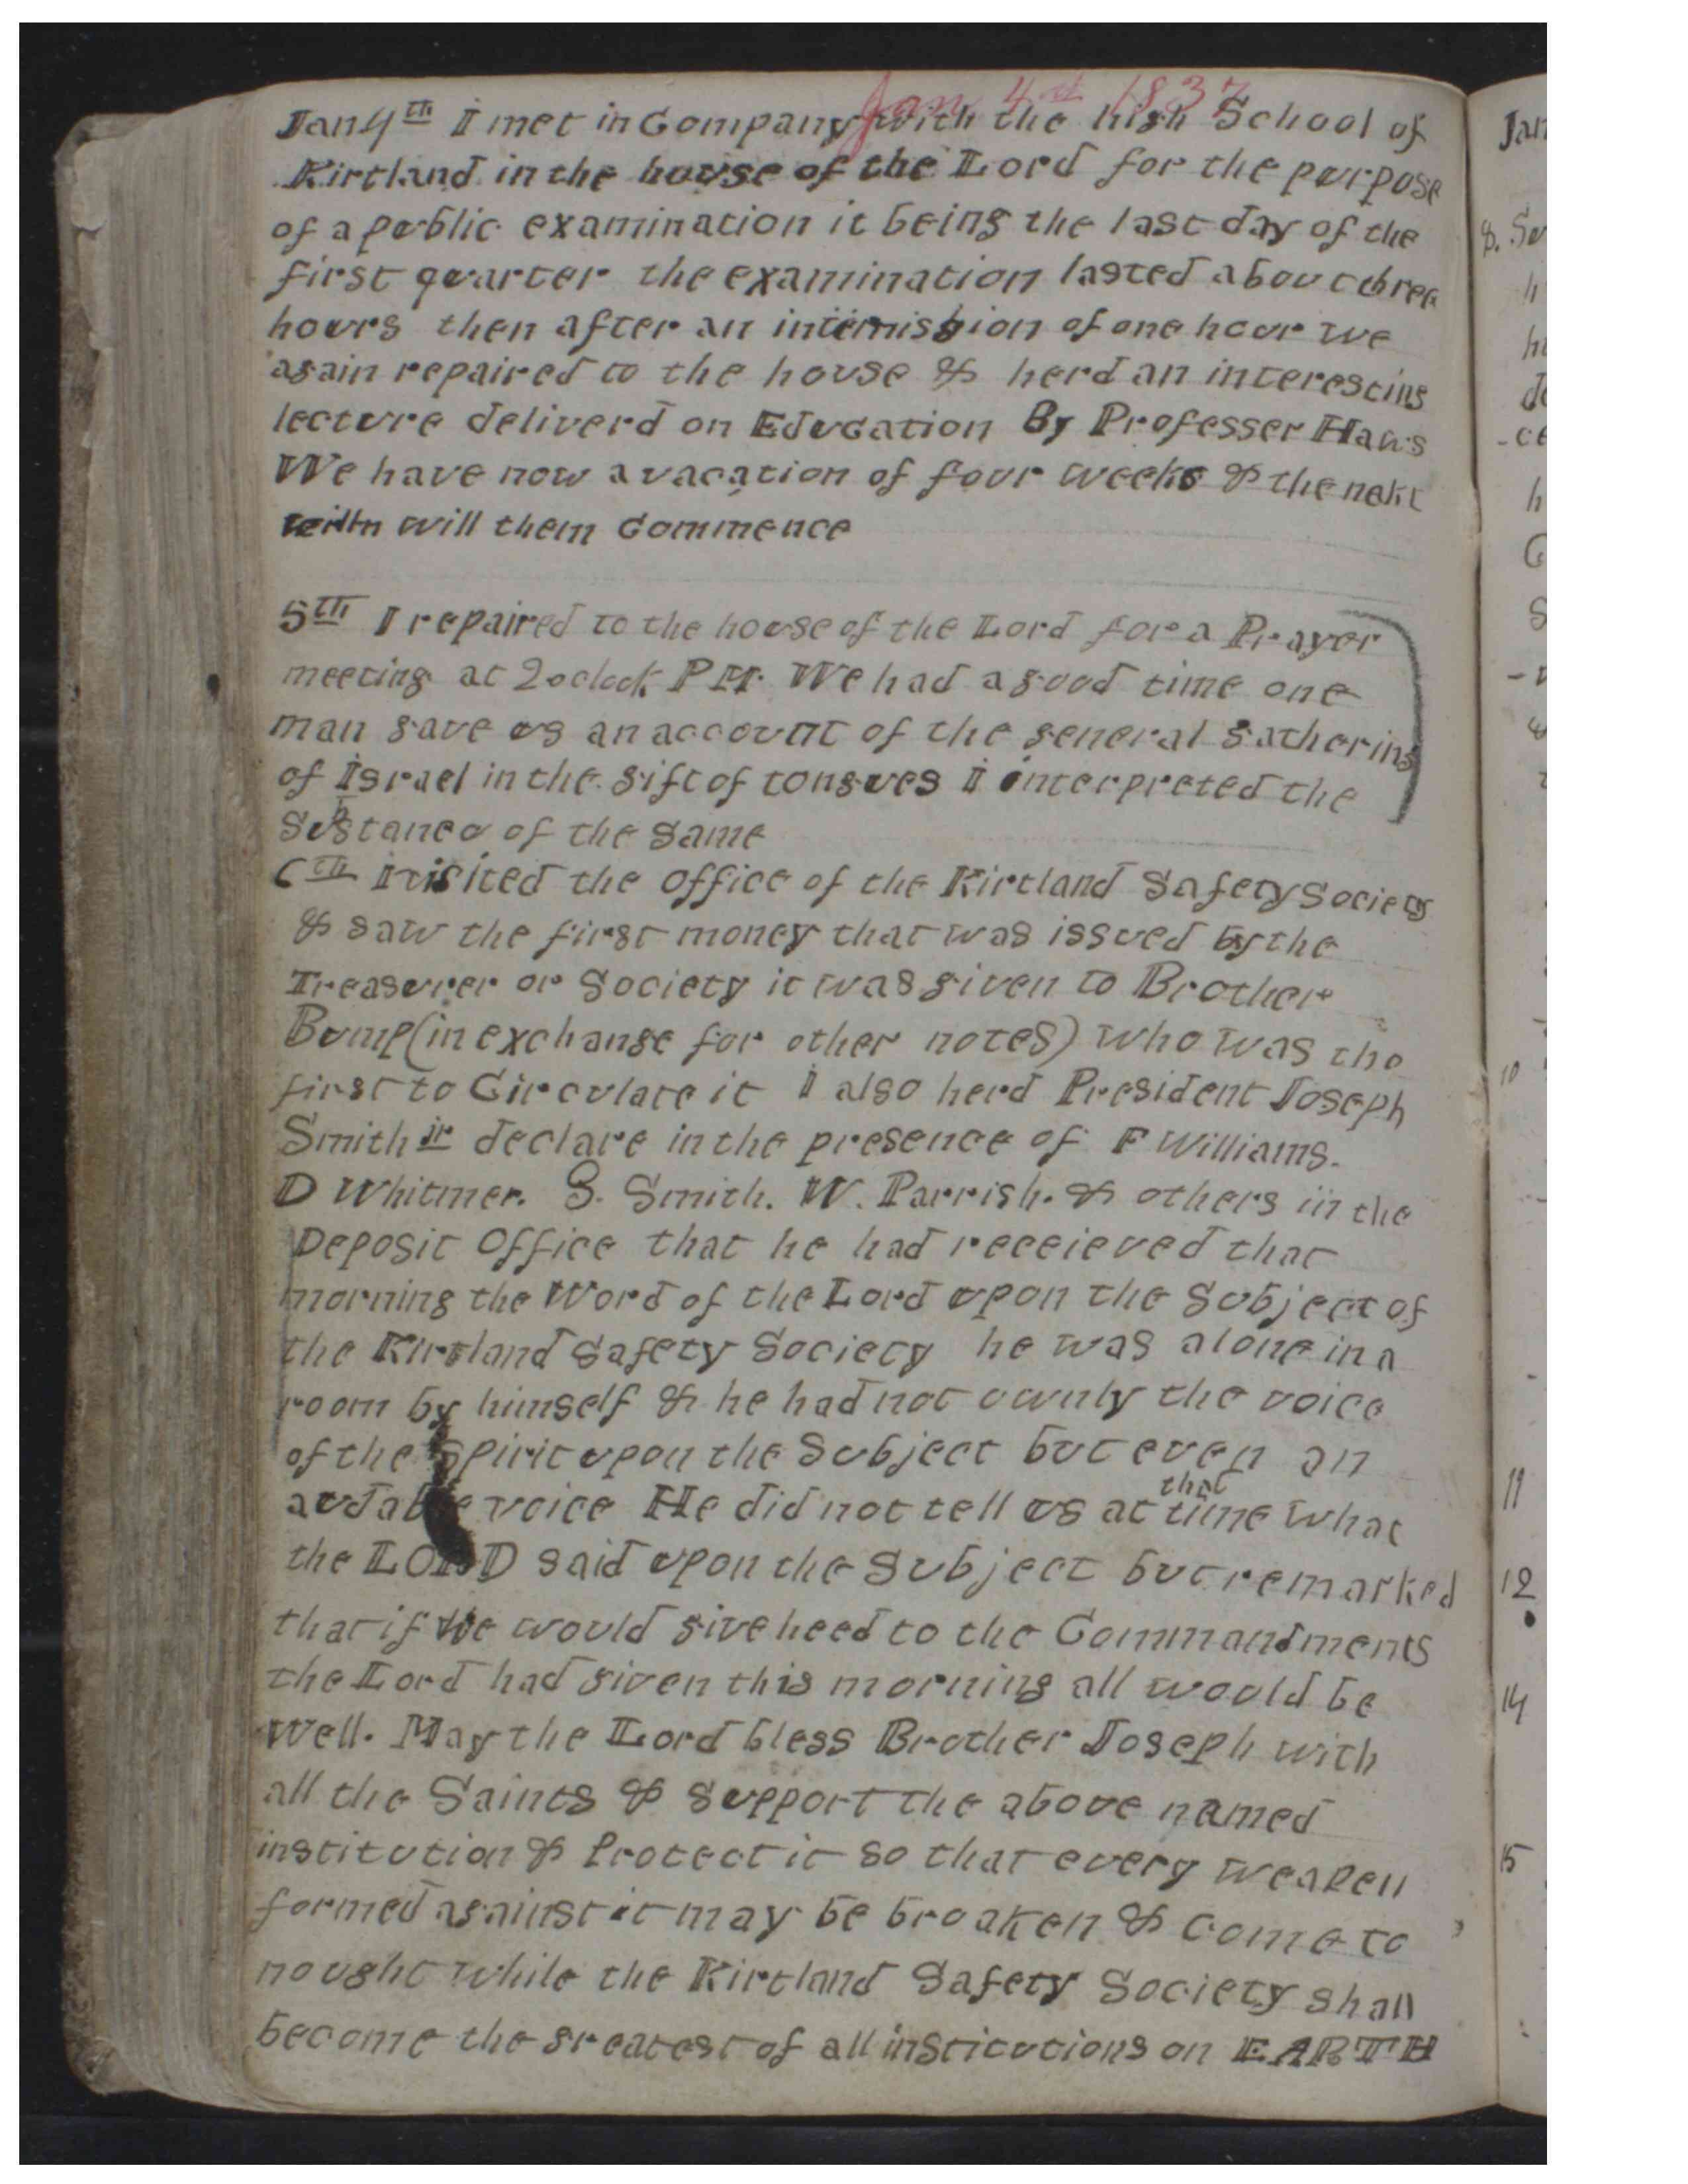 Jan 4th 1837
Jan 4th I met in Company with the high School of
Kirtland in the house of the Lord for the purpose
of a public examination it being the last day of the
first quarter the examination lasted about three
hours then after an intermission of one hour we
again repaired to the house & herd an interesting
lecture deliverd on Education By Professer Haws
We have now a vacation of four weeks & the next
will them Commence
5th I repaired to the house of the Lord for a Prayer
meeting at 2 oclock PM. We had a good time one
man gave us an account of the general gathering
of Israel in the gift of tongues I interpreted the
Substance of the same
6th I visited the office of the Kirtland Safety Society
& saw the first money that was issued by the
Treasurer or Society it was given to Brother
Bump (in exchange for other notes) who was the
first to Circulate it I also herd President Joseph
Smith jr declare in the presence of F Williams.
D Whitmer. S. Smith. W. Parrish. & others in the
Deposit Office that he had receieved that
morning the Word of the Lord upon the Subject of
the Kirtland Safety Society he was alone in a
room by himself & he had not ownly the voice
of the Spirit upon the Subject but even an
audable voice He did not tell us at that time what
the LORD said upon the Subject but remarked
that if we would give heed to the Commandments
the Lord had given this morning all would be
well. May the Lord bless Brother Joseph with
all the Saints & support the above named
institution & Protect it so that every weapen
formed against it may be broaken & come to
nought while the Kirtland Safety Society shall
become the greatest of all institutions on EARTH
Jan
8. Se
10
11
12
14
15